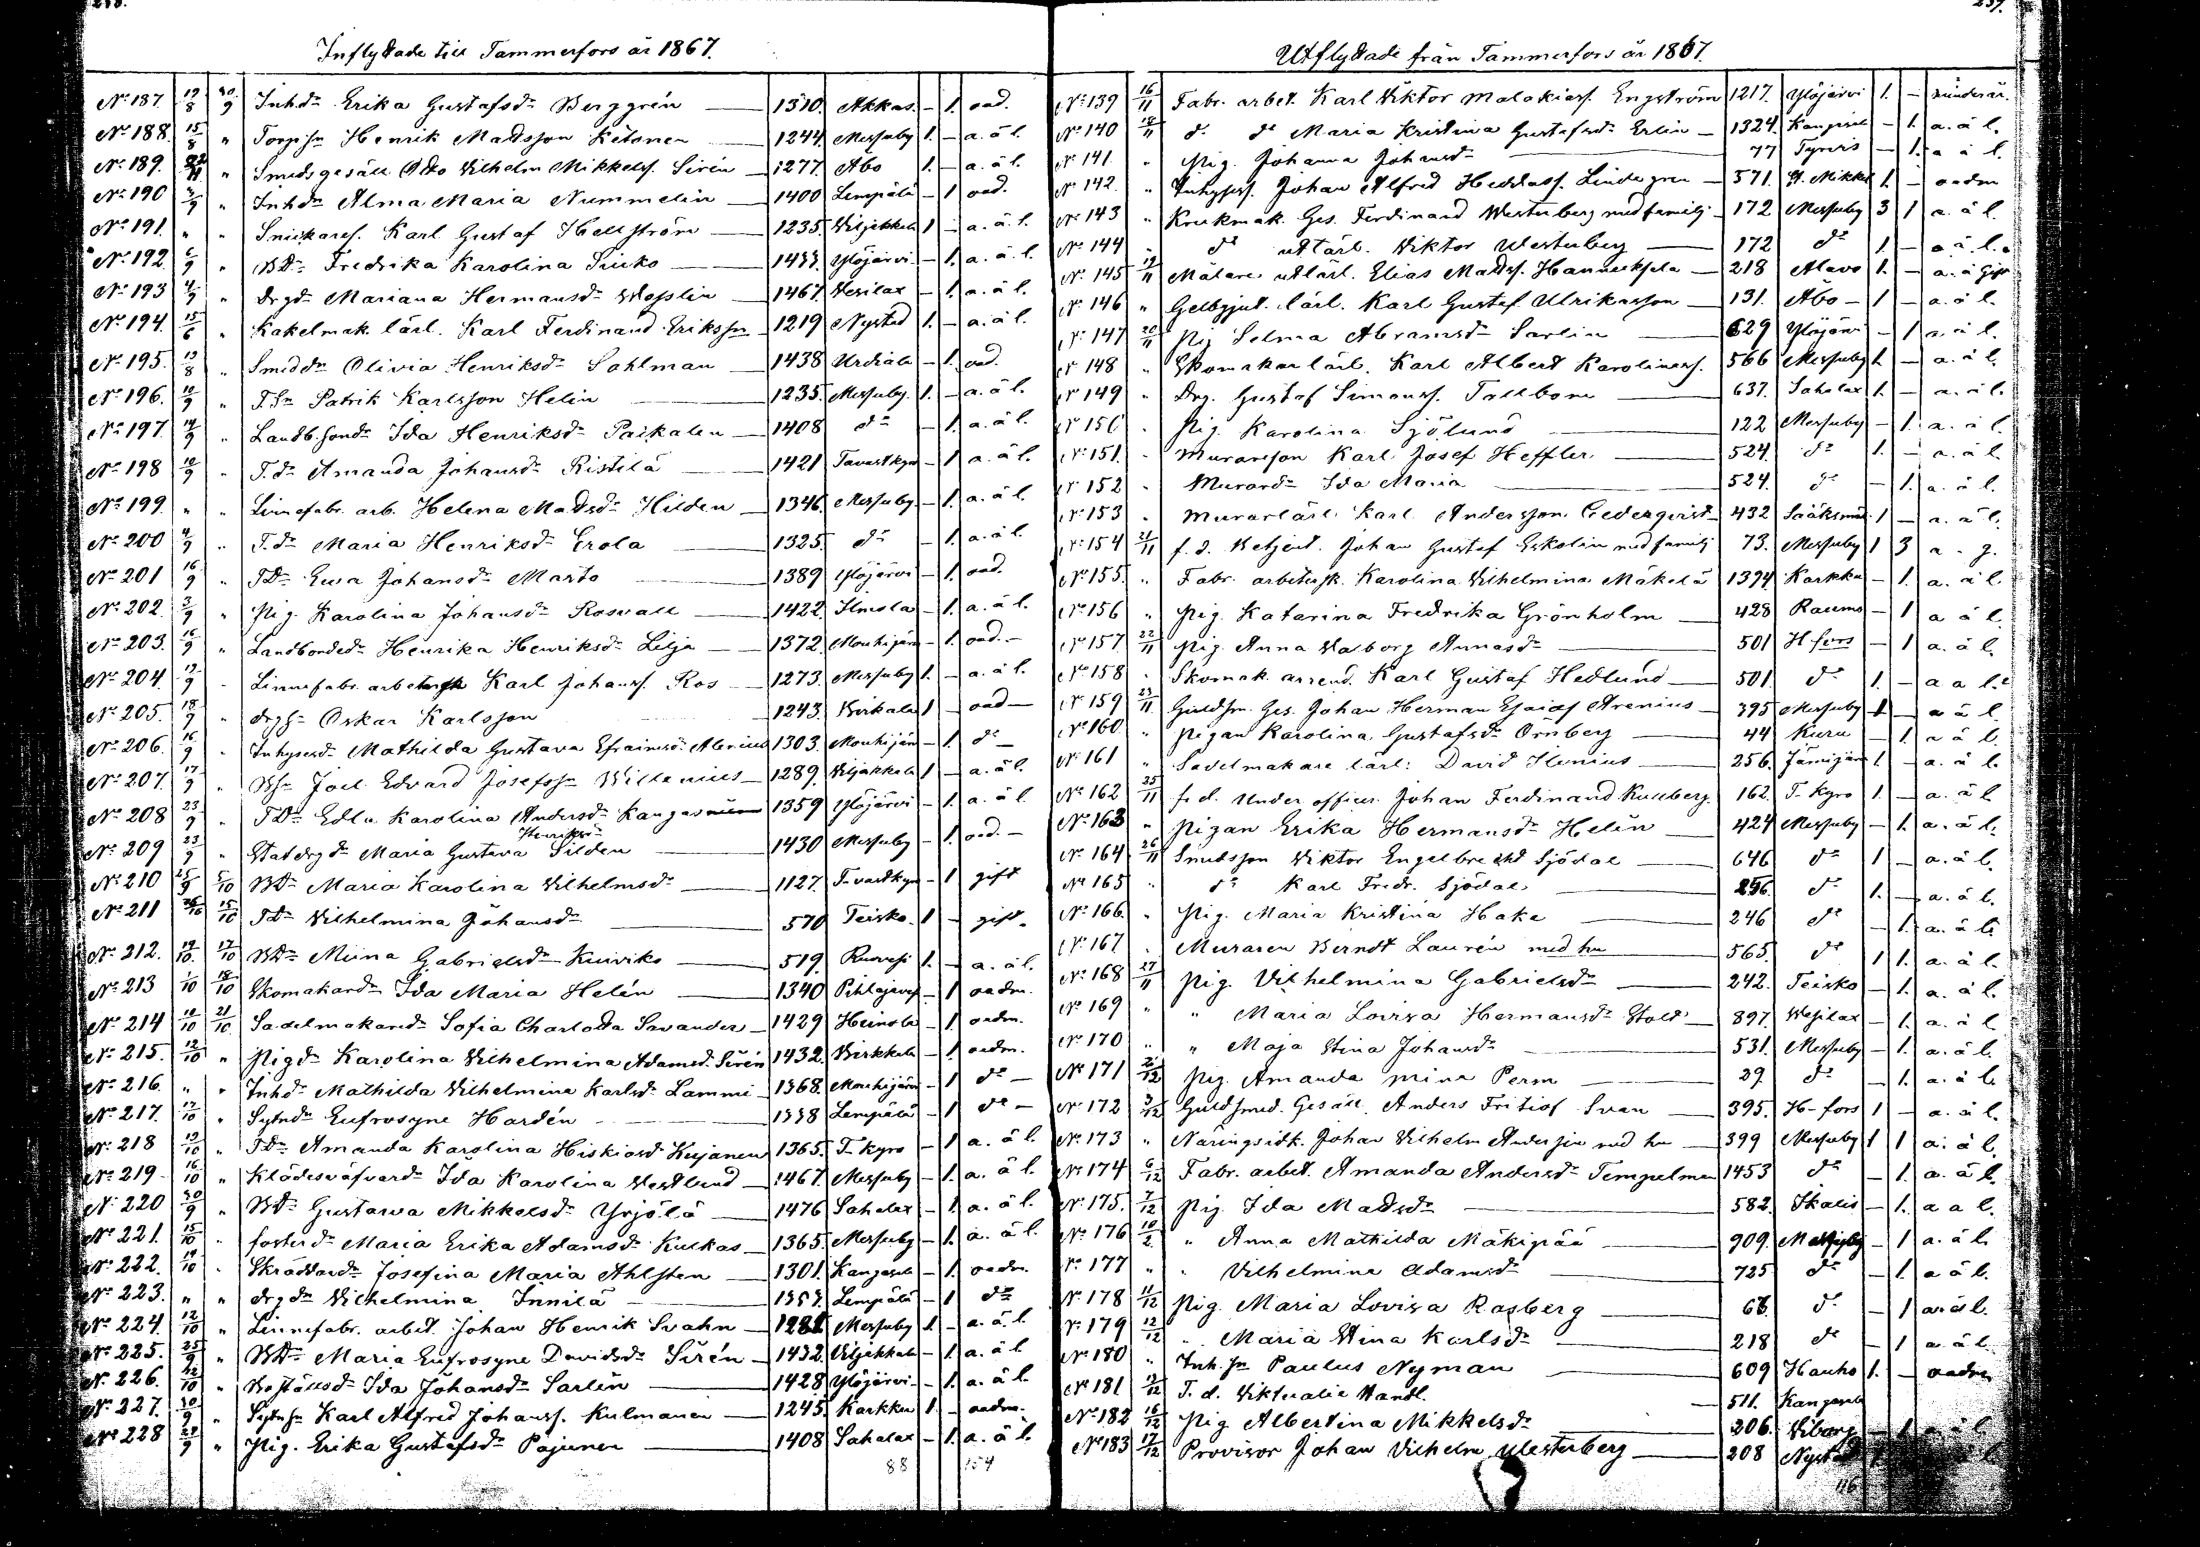 Inflyttade till Tammerfors år 1867.
No 187. 19/8 30/9 Inhdr Erika Gustafsdr Berggrén 1310. Akkas. - 1. oad.
No 188. 15/8 " Torpsn Henrik Mattsson Ketonen 1244. Messuby 1. - a. ä l.
No 189. " Smedsgesäll Otto Wilhelm Mikkelss. Sirén 1277. Åbo 1. - a. ä l.
No 190 3/9 " Inhdr Alma Maria Nummelin 1400 Lempälä - 1 oad.
No 191. " " Snickares. Karl Gustaf Hellström 1235. Viljakkala 1 - a. ä l.
No 192. 6/9 " BDr Fredrika Karolina Siuko 1433. Ylöjärvi - 1. a. ä l.
No 193 4/9 " Drgdr Mariana Hermansdr 1467. Vesilax - 1. a. ä l.
No 194. 15/6 " Kakelmak. lärl. Karl Ferdinand Erikssn 1219 Nystad 1. - a. ä l.
No 195. 13/8 " Smeddr Olivia Henriksdr Sahlman 1438 Urdiala - 1. oad.
No 196. 10/9 " T.Sn Patrik Karlsson Helin 1235. Messuby. 1. - a. ä l.
No 197. 14/9 " Landb.sondr Ida Henriksdr Paikalen 1408 do - 1. a. ä l.
No 198 10/9 " T.dr Amanda Johansdr Ristilä 1421 Tavastkyro - 1 a. ä l.
No 199. " " Linnefabr. arb. Helena Mattsdr Hilden 1346. Messuby - 1. a. ä l.
No 200 4/9 " T.dr Maria Henriksdr Erola 1325. do - 1. a. ä l.
No 201 16/9 " TDr Ewa Johansdr Marto 1389 Ylöjärvi - 1. oad.
No 202. 3/9 " Pig. Karolina Johansdr Rosvall 1422. Ilmola - 1. a. ä l.
No 203. 16/9 " Landbondedr Henrika Henriksdr Lilja 1372. Mouhijärvi - 1. oad. -
No 204. 13/9 - Linnefabr. Karl Johanss. Ros 1273. Messuby 1. - a. ä l.
No 205. 18/9 " drgs. Oskar Karlsson 1243. Birkala 1 - oad -
No 206. 16/9 " Inhysesdr Mathilda Gustava Efraimsdr 1303. Mouhijärvi - 1. do -
No 207. 17/9 " Bs. Joel Edvard Josefssn Willenius 1289. Viljakkala 1 - a. ä l.
No 208 23/9 " TDr Edla Karolina Andersdr 1359 Ylöjärvi - 1. a. ä l.
Henriksdr
No 209 23/9 " Statdrgdr Maria Gustava Silden 1430 Messuby - 1. oad. -
No 210 25/9 5/10 BDr Maria Karolina Wilhelmsdr 1127. T-vastkyro - 1 gift
No 211 15/10 TDr Wilhelmina Johansdr 570 Teisko. 1 - gift.
No 212. 14/10 17/10 BDr Miina Gabrielsdr Kuiviko 519. Ruovesi 1. - a. ä l.
No 213 1/10 18/10 Skomakardr Ida Maria Helén 1340 Pihlajavesi - 1 oadm.
No 214 18/10 21/10 Sadelmakaredr Sofia Charlotta Savander 1429 Heinola - 1 oadm.
No 215. 12/10 " Pigdr Karolina Wilhelmina Adamsdr Sirén 1432. Birkkala - 1. oadm.
No 216. " " Inhdr Mathilda Wilhelmina Karlsdr Lammi 1368. Mouhijärvi - 1 do -
No 217. 17/10 " Sytndr Eufrosyne Hardén 1338 Lempälä - 1 do -
No 218 13/10 " TDr Amanda Karolina Hiskiasdr Kujanen 1365. T-kyro - 1 a. ä l.
No 219 16/10 " Klädesväfvardr Ida Karolina Westlund 1467. Messuby - 1. a. ä l.
No 220 30/9 " BDr Gustava Mikkelsdr Yrjölä 1476 Sahalax - 1. a. ä l.
No 221. 15/10 " fosterdr Maria Erika Adamsdr Kukkas 1365. Messuby - 1. a. ä l.
No 222. 19/10 " Skräddardr Josefina Maria Ahlsten 1301. Kangasala - 1. oadm.
No 223. " " drgdr Wilhelmina Innilä 1353. Lempälä - 1 do
No 224. 12/10 " Linnefabr. arbet. Johan Henrik Svahn Messuby 1. - a. ä. l
No 225. 25/9 " BDr Maria Eufrosyne Davidsdr Sirén 1432. Viljakkala - 1. a. ä l
No 226. 12/10 " Ida Johansdr Sarlin 1428 Ylöjärvi - 1. a. ä l.
No 227. 30/9 " Sytnsn Karl Alfred Johanss. Kulmanen 1245. Karkku 1. - oadm.
No 228 23/9 " Pig. Erika Gustafsdr Pajunen 1408 Sahalax - 1. a. ä l.
88 154
Utflyttade från Tammerfors år 1867.
257.
No 139 16/11 Fabr. arbet. Karl Wiktor Malakiass. Engström 1217. Ylöjärvi 1. -
No 140 18/11 d. do Maria Kristina Gustafsdr Erlin 1324. Kangasala - 1. a. ä l.
No 141. " Pig. Johanna Johansdr 77 Tyrvis - 1. a ä l.
No 142. " Inhysess. Johan Alfred Lindegren 571. St. Mikkel 1. - oadm
No 143 " Krukmak. Ges. Ferdinand Westerberg med familj 172 Messuby 3 1 a. ä l.
No 144 " do utlärl. Wiktor Westerberg 172 do 1. - a ä l.
No 145 19/11 Målare utlärl. Elias Matts. Hannuksela 218 Alavo 1. - a. ä gift
No 146 " Gelbgjut. lärl. Karl Gustaf Ulrikasson 131. Åbo - 1 - a. ä l.
No 147 20/11 Pig Selma Abramsdr Sarlin 629 Ylöjärvi - 1 a. ä l.
No 148 " Skomakarlärl. Karl Albert Karolinass. 566 Messuby 1. - a. ä l.
No 149 " Drg. Gustaf Simonss. Tallbom 637. Sahalax 1. - a. ä l.
No 150 " Pig. Karolina Sjölund 122 Messuby - 1. a. ä l.
No 151. " Muraresson Karl Josef Heffler 524. do 1. - a. ä l.
No 152 " Murardr Ida Maria 524. do - 1. a. ä l.
No 153 " Murarlärl. Karl Andersson Cederqvist 432 Sääksmäki 1 - a. ä l.
No 154 21/11 f. d. Betjent. Johan Gustaf Eskolin med familj 73. Messuby 1 3 a - g.
No 155. " Fabr. arbetersk. Karolina Wilhelmina Mäkelä 1394. Karkku - 1. a. ä l.
No 156 " Pig Katarina Fredrika Grönholm 428 Raumo - 1 a ä l.
No 157 22/11 Pig. Anna Walborg Annasdr 501 H.fors - 1 a. ä l.
No 158 " Skomak. arrend. Karl Gustaf Hedlund 501. do 1. - a a l.
No 159 23/11 Guldsm. Ges. Johan Herman Esaias Arenius 395 Messuby 1 - a ä l.
No 160 " Pigan Karolina Gustafsdr Örnberg 44 Kuru - 1 a ä l.
No 161 " Sadelmakare lärl: David Ilenius 256. Jämijärvi 1. - a. ä l.
No 162 25/11 f. d. Under officer Johan Ferdinand Kullberg. 162. T-kyro 1. - a. ä l
No 163 " Pigan Erika Hermansdr Helén 424 Messuby - 1. a. ä l.
No 164 26/11 Smedsson Wiktor Engelbrekt Sjödal 646 do 1 - a. ä l.
No 165 " do Karl Fredr. Sjödal do 1. - a. ä l.
No 166. " Pig. Maria Kristina Hake 246 do - 1. a. ä l.
No 167 " Muraren Berndt Laurén med hu 565. do 1 1. a. ä l.
No 168 27/11 Pig. Wilhelmina Gabrielsdr 242. Teisko - 1. a. ä l.
No 169 " " Maria Lovisa Hermansdr 897. Wesilax - 1. a. ä l
No 170 " " Maja Stina Johansdr 531. Messuby - 1. a. ä l.
No 171 2/12 Pig. Amanda Mina Perm 29. do - 1. a. ä l.
No 172 3/12 Guldsmed. Gesäll. Anders Fritiof Svan 395. H-fors 1 - a. ä l.
No 173 " Näringsidk. Johan Wilhelm Andersin med hu 399 Messuby 1 1 a. ä l.
No 174 6/12 Fabr. arbet. Amanda Andersdr Tempelman 1453 do - 1. a. ä l.
No 175. 7/12 Pig. Ida Mattsdr 582. Ikalis - 1. a ä l.
No 176 " Anna Mathilda Mäkipää 909. Messuby - 1 a. ä l.
No 177 " " Vilhelmina Adamsdr 725 do - 1. a ä l.
No 178 11/12 Pig. Maria Lovisa Rasberg do - 1 a ä l.
No 179 12/12 " Maria Stina Karlsdr 218 do - 1 a. ä l.
No 180 " Inh.sn Paulus Nyman 609 Hauho 1. - oadm
No 181 13/12 T. d. Viktualie Handl. 511. Kangasala
No 182 16/12 Pig Albertina Mikkelsdr 206. Viborg - 1 a. ä l.
No 183 17/12 Provisor Johan Vilhelm Westerberg 208 Nystad
116